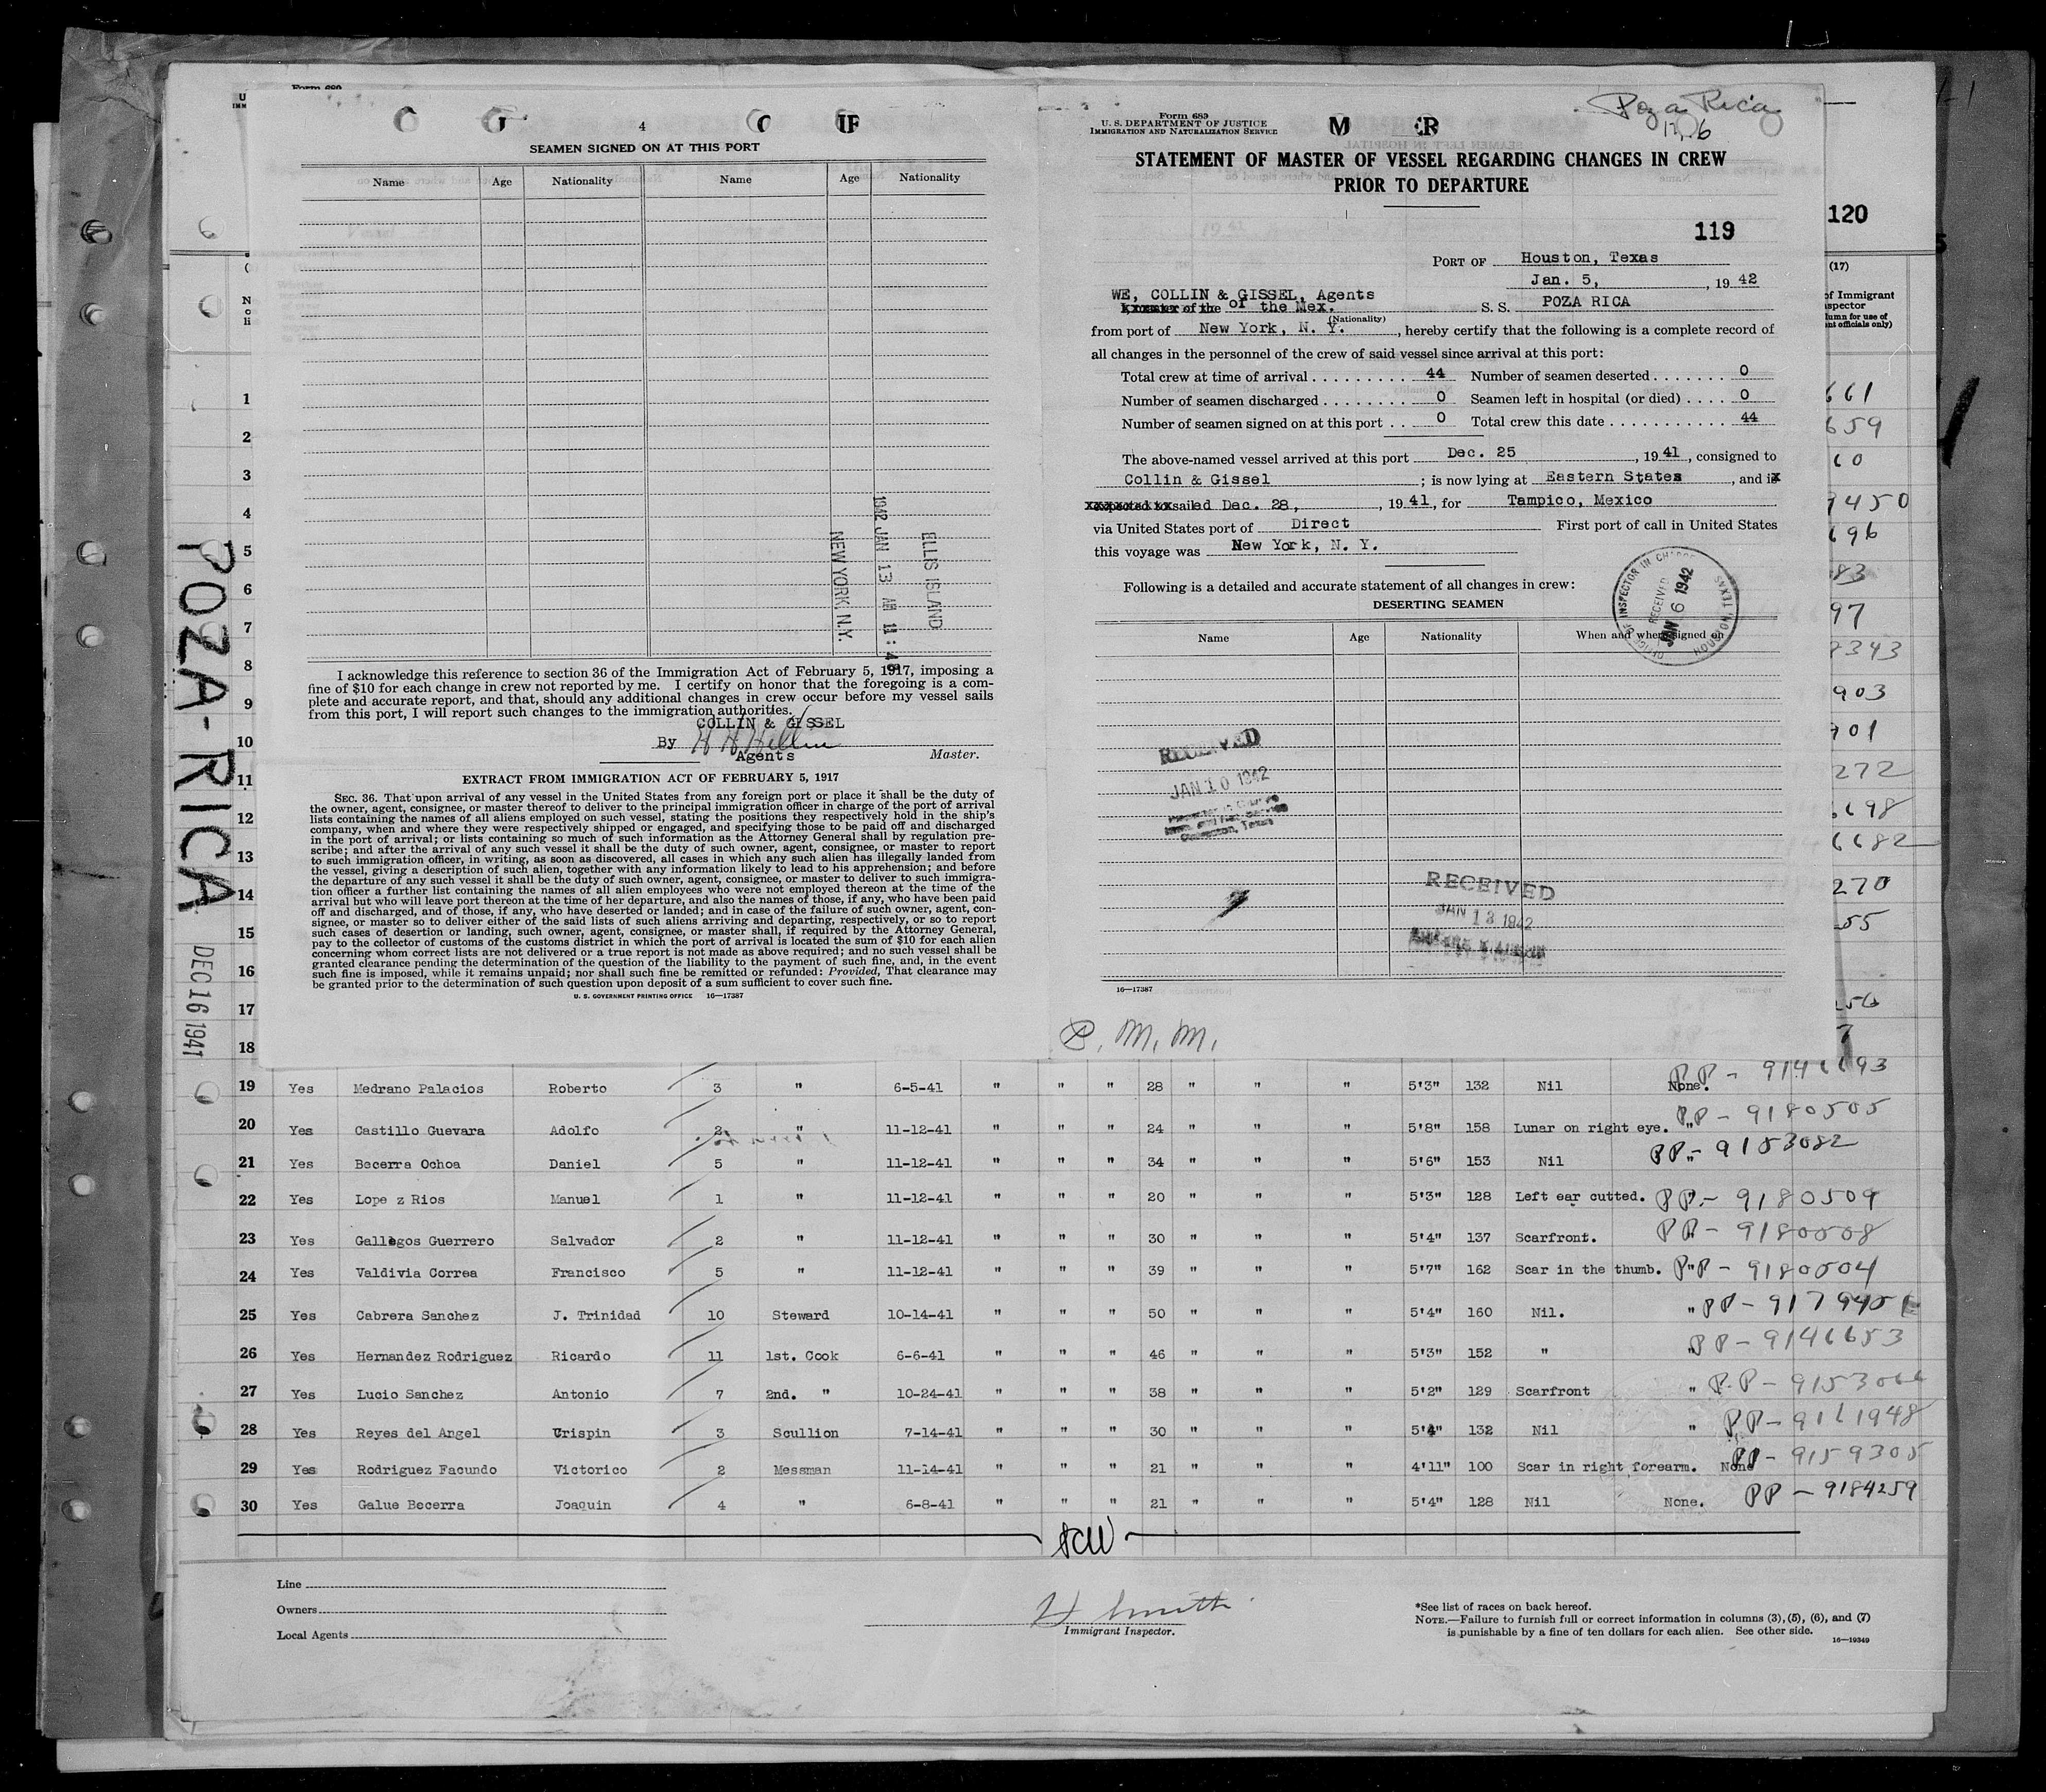 4
SEAMEN SIGNED ON AT THIS PORT
Name Age Nationality Name Age Nationality
ELLIS ISLAND
1942 JAN 13 AM 11:48
NEW YORK, N.Y.
I acknowledge this reference to section 36 of the Immigration Act of February 5, 1917, imposing a
fine of $10 for each change in crew not reported by me. I certify on honor that the foregoing is a com-
plete and accurate report, and that, should any additional changes in crew occur before my vessel sails
from this port, I will report such changes to the immigration authorities.
COLLIN & GISSEL
By
Agents Master.
EXTRACT FROM IMMIGRATION ACT OF FEBRUARY 5, 1917
SEC. 36. That upon arrival of any vessel in the United States from any foreign port or place it shall be the duty of
the owner, agent, consignee, or master thereof to deliver to the principal immigration officer in charge of the port of arrival
lists containing the names of all aliens employed on such vessel, stating the positions they respectively hold in the ship's
company, when and where they were respectively shipped or engaged, and specifying those to be paid off and discharged
in the port of arrival; or lists containing so much of such information as the Attorney General shall by regulation pre-
scribe; and after the arrival of any such vessel it shall be the duty of such owner, agent, consignee, or master to report
to such immigration officer, in writing, as soon as discovered, all cases in which any such alien has illegally landed from
the vessel, giving a description of such alien, together with any information likely to lead to his apprehension; and before
the departure of any such vessel it shall be the duty of such owner, agent, consignee, or master to deliver to such immigra-
tion officer a further list containing the names of all alien employees who were not employed thereon at the time of the
arrival but who will leave port thereon at the time of her departure, and also the names of those, if any, who have been paid
off and discharged, and of those, if any, who have deserted or landed; and in case of the failure of such owner, agent, con-
signee, or master so to deliver either of the said lists of such aliens arriving and departing, respectively, or so to report
such cases of desertion or landing, such owner, agent, consignee, or master shall, if required by the Attorney General,
pay to the collector of customs of the customs district in which the port of arrival is located the sum of $10 for each alien
concerning whom correct lists are not delivered or a true report is not made as above required; and no such vessel shall be
granted clearance pending the determination of the question of the liability to the payment of such fine, and, in the event
such fine is imposed, while it remains unpaid; nor shall such fine be remitted or refunded: Provided, That clearance may
be granted prior to the determination of such question upon deposit of a sum sufficient to cover such fine.
U. S. GOVERNMENT PRINTING OFFICE 16—17387
Form 689
U. S. DEPARTMENT OF JUSTICE
IMMIGRATION AND NATURALIZATION SERVICE
Poza Rica
STATEMENT OF MASTER OF VESSEL REGARDING CHANGES IN CREW
PRIOR TO DEPARTURE
119
PORT OF Houston, Texas
Jan. 5, , 19 42
WE, COLLIN & GISSEL, Agents
of the Mex. S. S. POZA RICA
(Nationality)
from port of New York, N. Y. , hereby certify that the following is a complete record of
all changes in the personnel of the crew of said vessel since arrival at this port:
Total crew at time of arrival 44 Number of seamen deserted 0
Number of seamen discharged 0 Seamen left in hospital (or died) 0
Number of seamen signed on at this port 0 Total crew this date 44
The above-named vessel arrived at this port Dec. 25 , 19 41 , consigned to
Collin & Gissel ; is now lying at Eastern States , and is
sailed Dec. 28, , 19 41 , for Tampico, Mexico
via United States port of Direct First port of call in United States
this voyage was New York, N. Y.
OFFICE OF INSPECTOR IN CHARGE
RECEIVED
JAN 6 1942
HOUSTON, TEXAS
Following is a detailed and accurate statement of all changes in crew:
DESERTING SEAMEN
Name Age Nationality When and where signed on
RECEIVED
JAN 10 1942
RECEIVED
JAN 13 1942
16—17387
P. M. M.
120
(17)
of Immigrant
spector
lumn for use of
nt officials only)
POZA-RICA
DEC 16 1941
1
2
3
4
5
6
7
8
9
10
11
12
13
14
15
16
17
18
19 Yes Medrano Palacios Roberto 3 " 6-5-41 " " " 28 " " " 5'3" 132 Nil None. PP - 9146693
20 Yes Castillo Guevara Adolfo 2 " 11-12-41 " " " 24 " " " 5'8" 158 Lunar on right eye. " PP - 9180505
21 Yes Becerra Ochoa Daniel 5 " 11-12-41 " " " 34 " " " 5'6" 153 Nil " PP - 9153082
22 Yes Lope z Rios Manuel 1 " 11-12-41 " " " 20 " " " 5'3" 128 Left ear cutted. " PP - 9180509
23 Yes Gallegos Guerrero Salvador 2 " 11-12-41 " " " 30 " " " 5'4" 137 Scarfront. " PP - 9180508
24 Yes Valdivia Correa Francisco 5 " 11-12-41 " " " 39 " " " 5'7" 162 Scar in the thumb. " PP - 9180504
25 Yes Cabrera Sanchez J. Trinidad 10 Steward 10-14-41 " " " 50 " " " 5'4" 160 Nil. " PP - 9179451
26 Yes Hernandez Rodriguez Ricardo 11 1st. Cook 6-6-41 " " " 46 " " " 5'3" 152 " " PP - 9146653
27 Yes Lucio Sanchez Antonio 7 2nd. " 10-24-41 " " " 38 " " " 5'2" 129 Scarfront " PP - 9153066
28 Yes Reyes del Angel Crispin 3 Scullion 7-14-41 " " " 30 " " " 5'4" 132 Nil " PP - 9161948
29 Yes Rodriguez Facundo Victorico 2 Messman 11-14-41 " " " 21 " " " 4'11" 100 Scar in right forearm. None PP - 9159305
30 Yes Galue Becerra Joaquin 4 " 6-8-41 " " " 21 " " " 5'4" 128 Nil None. PP - 9184259
Line
Owners
Local Agents
H Smith
Immigrant Inspector.
*See list of races on back hereof.
NOTE.—Failure to furnish full or correct information in columns (3), (5), (6), and (7)
is punishable by a fine of ten dollars for each alien. See other side.
16—19349